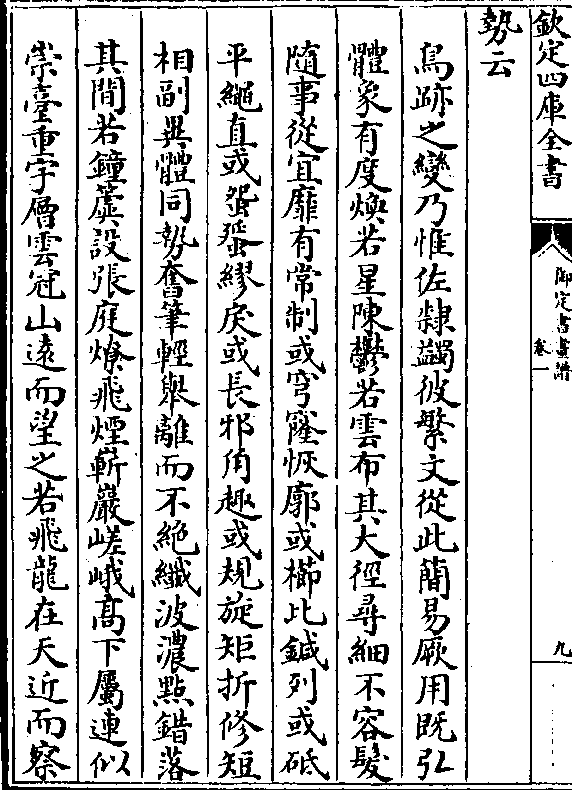 欽定四庫全書
御定書畫譜
卷一
九
勢云
鳥跡之變乃惟佐隸蠲彼繁文從此簡易厥用既弘
體象有度煥若星陳鬱若雲布其大徑尋細不容髮
隨事從宜靡有常制或穹窿恢廓或櫛比鍼列或砥
平繩直或蜿蜒繆戾或長邪角趣或規旋矩折修短
相副異體同勢奮筆輕舉離而不絶纖波濃點錯落
其間若鐘虡設張庭燎飛煙嶄巖嵯峨高下屬連似
崇臺重宇層雲冠山遠而望之若飛龍在天近而察